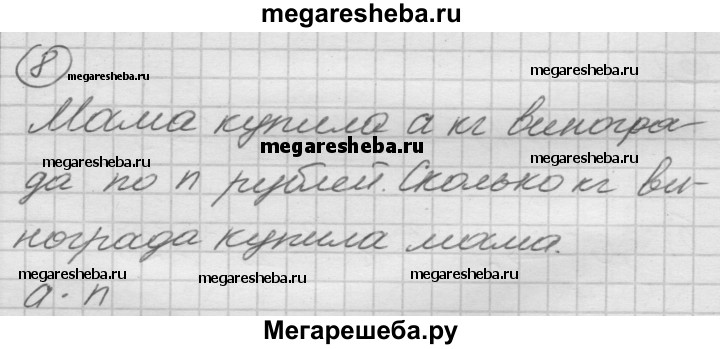 megaresheba.ru
8
megaresheba.ru
megaresheba.ru
Мама купила а кг виногра-
megaresheba.ru
да по n рублей. Сколько кг ви-
megaresheba.ru
megaresheba.ru
нограда купила мама.
megaresheba.ru
megaresheba.ru
megaresheba.ru
а · n
Мегарешеба.ру